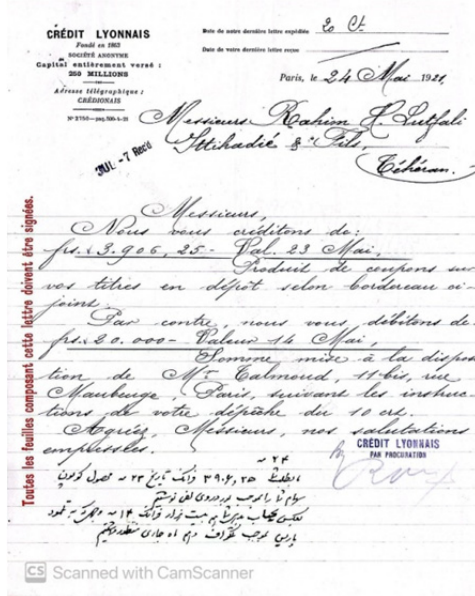 CRÉDIT LYONNAIS
Fondé en 1863
SOCIÉTÉ ANONYME
Capital entièrement versé :
250 MILLIONS
Adresse télégraphique :
CRÉDIONAIS
Date de notre dernière lettre expédiée 20 Ct.
Date de votre dernière lettre reçue
Paris, le 24 Mai 1921
Messieurs Rahim H. Lutfali
Ittihadié & Fils,
Téhéran.
JUL -7 Rec'd
Messieurs,
Nous vous créditons de:
frs. 3.906,25- Val. 23 Mai,
Produit de coupons sur
vos titres en dépôt selon bordereau ci-
joint.
Par contre nous vous débitons de
frs. 20.000- Valeur 14 Mai,
Somme mise à la disposi
tion de Mr Talmoud, 11 bis, rue
Maubeuge, Paris, suivant les instruc-
tions de votre dépêche du 10 crt.
Agréez, Messieurs, nos salutations
empressées.
CRÉDIT LYONNAIS
PAR PROCURATION
Toutes les feuilles composant cette lettre doivent être signées.
CS Scanned with CamScanner